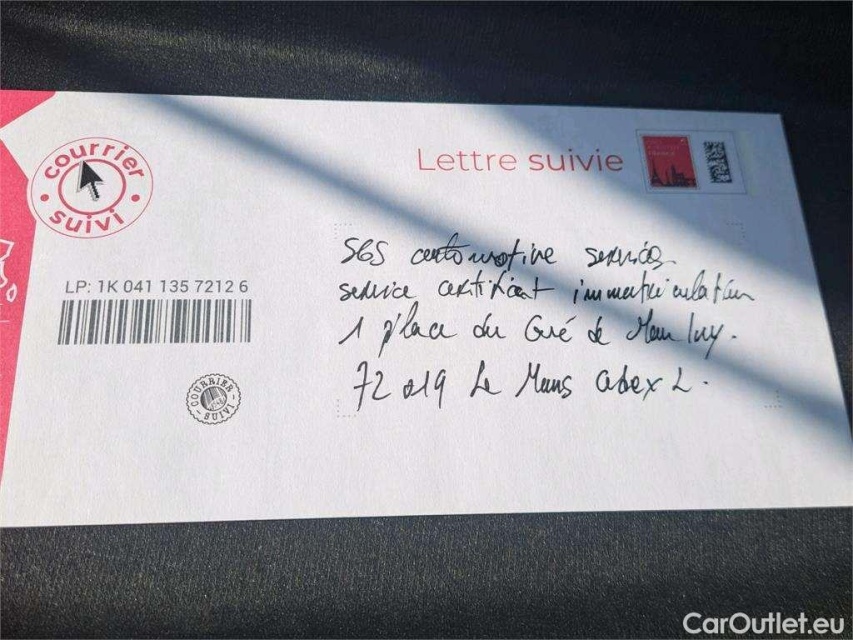 courrier
suivi
Lettre suivie
SGS automotive services
service certificat immatriculation
1 place du Gué de Maulny.
72019 Le Mans cedex 2.
LP: 1K 041 135 7212 6
COURRIER
SUIVI
CarOutlet.eu